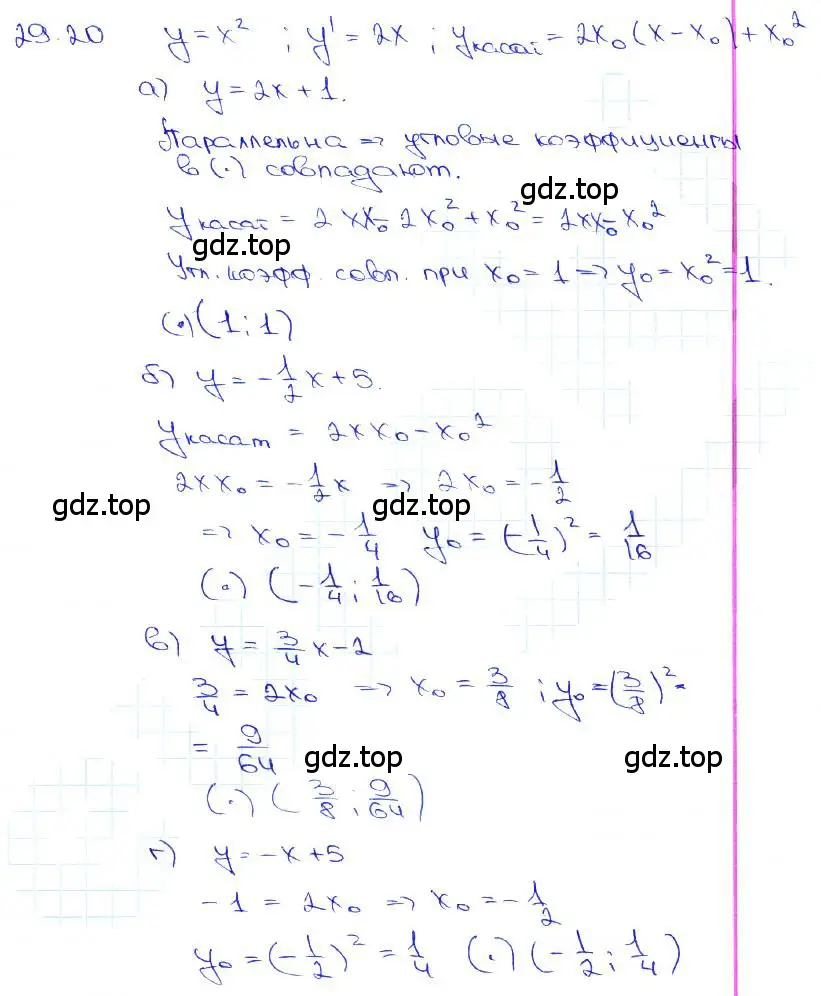 29.20 y = x² ; y' = 2x ; yкасат = 2x₀(x-x₀)+x₀²
а) y = 2x+1.
Параллельна => угловые коэффициенты
в (·) совпадают.
gdz.top
yкасат = 2xx₀-2x₀²+x₀² = 2xx₀-x₀²
gdz.top
Угл. коэфф. совп. при x₀ = 1 => y₀ = x₀² = 1.
(·)(1; 1)
б) y = -1/2 x + 5.
yкасат = 2xx₀ - x₀²
2xx₀ = -1/2 x => 2x₀ = -1/2
gdz.top gdz.top
=> x₀ = -1/4 y₀ = (-1/4)² = 1/16
(·) (-1/4; 1/16)
в) y = 3/4 x - 2
3/4 = 2x₀ => x₀ = 3/8 ; y₀ = (3/8)² =
= 9/64
gdz.top gdz.top
(·) (3/8; 9/64)
г) y = -x+5
-1 = 2x₀ => x₀ = -1/2
y₀ = (-1/2)² = 1/4 (·) (-1/2; 1/4)